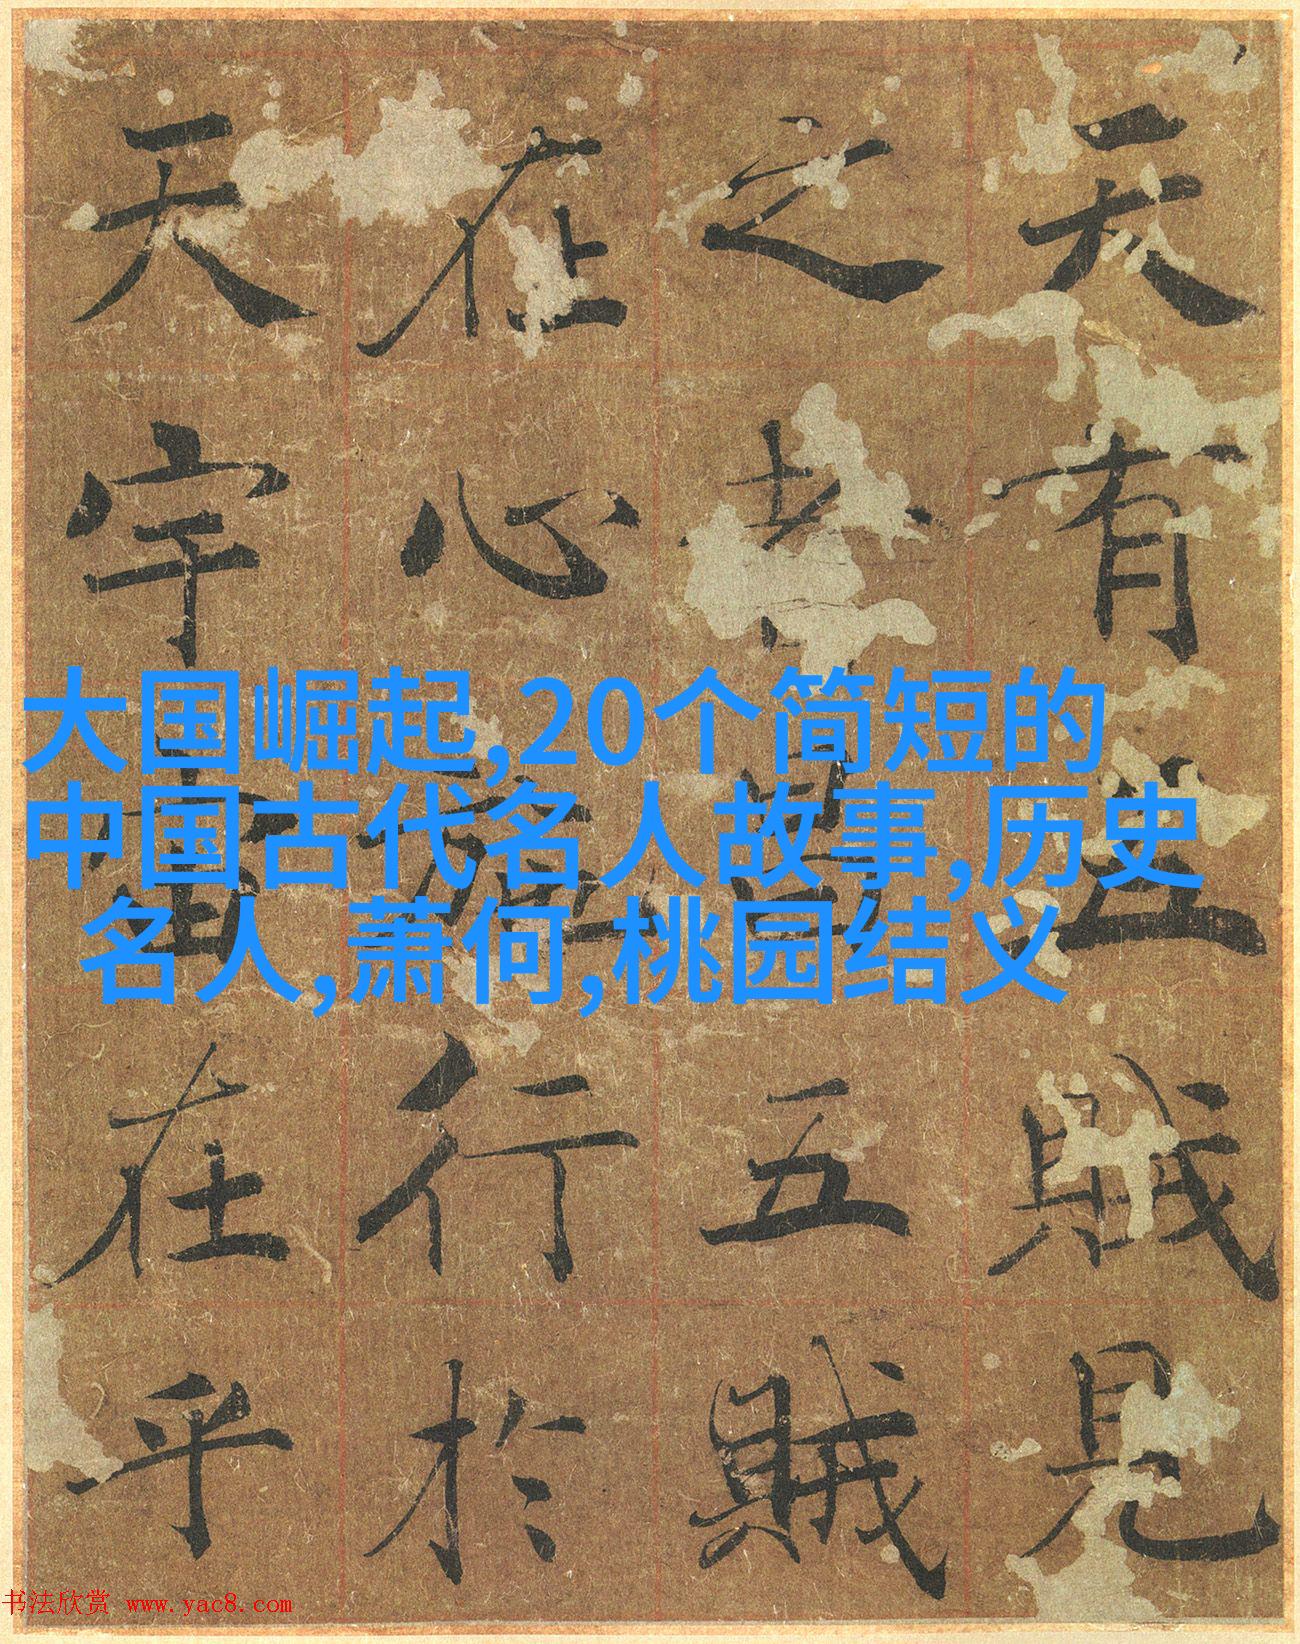 天有五賊見
之者昌五賊
在心施行於
天宇宙在乎
大国崛起,20个简短的
中国古代名人故事,历史
名人,萧何,桃园结义
书法欣赏 www.yac8.com